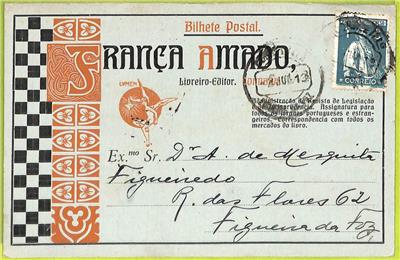 Bilhete Postal.
FRANÇA AMADO,
Livreiro-Editor. Coimbra
LVMEN
CORREIO
Administração da Revista de Legislação
e de Jurisprudencia. Assignatura para
todos os jornaes portugueses e estran-
geiros. Correspondencia com todos os
mercados do livro.
Ex.mo Sr. Dr A. de Mesquita
Figueiredo
R. das Flores 62
Figueira da Foz